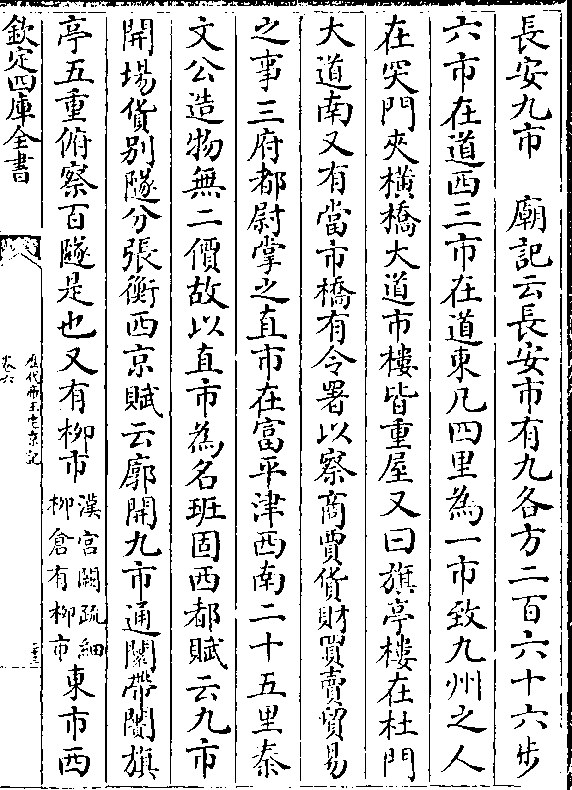 長安九市　廟記云長安市有九各方二百六十六步
六市在道西三市在道東凡四里為一市致九州之人
在突門夾橫橋大道市樓皆重屋又曰旗亭樓在杜門
大道南又有當市橋有令署以察商賈貨財買賣貿易
之事三府都尉掌之直市在富平津西南二十五里秦
文公造物無二價故以直市為名班固西都賦云九市
開場貨別隧分張衡西京賦云廓開九市通闤帶闠旗
亭五重俯察百隧是也又有柳市漢宮闕疏細柳倉有柳市東市西
欽定四庫全書
歷代帝王宅京記
卷六